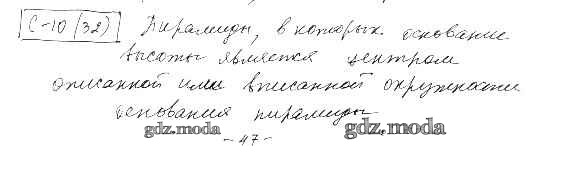 С-10 (32) Пирамиды, в которых основание
высоты является центром
описанной или вписанной окружности
основания пирамиды
gdz.moda gdz.moda
- 47 -